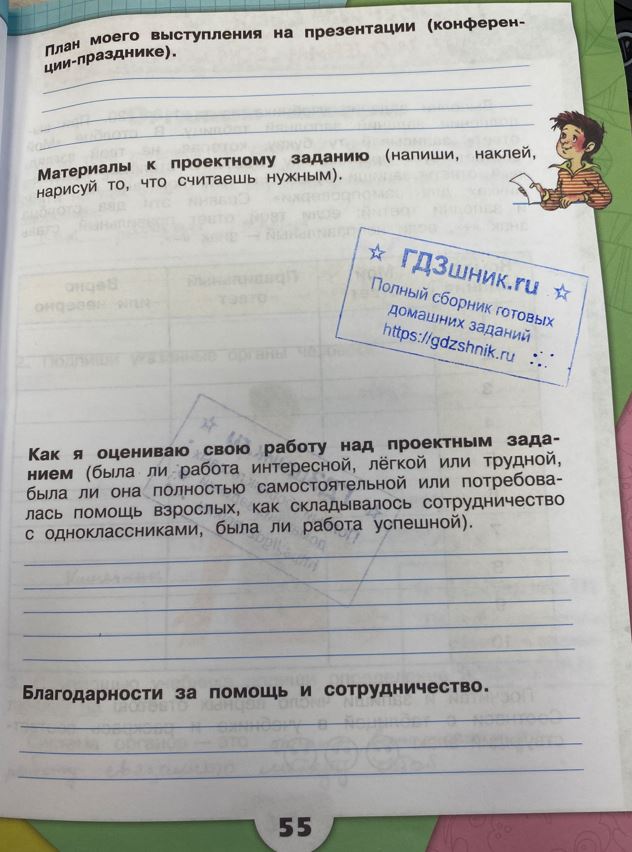 План моего выступления на презентации (конферен-
ции-празднике).
Материалы к проектному заданию (напиши, наклей,
нарисуй то, что считаешь нужным).
☆ ГДЗшник.ru ☆
Полный сборник готовых
домашних заданий
https://gdzshnik.ru
Как я оцениваю свою работу над проектным зада-
нием (была ли работа интересной, лёгкой или трудной,
была ли она полностью самостоятельной или потребова-
лась помощь взрослых, как складывалось сотрудничество
с одноклассниками, была ли работа успешной).
Благодарности за помощь и сотрудничество.
55